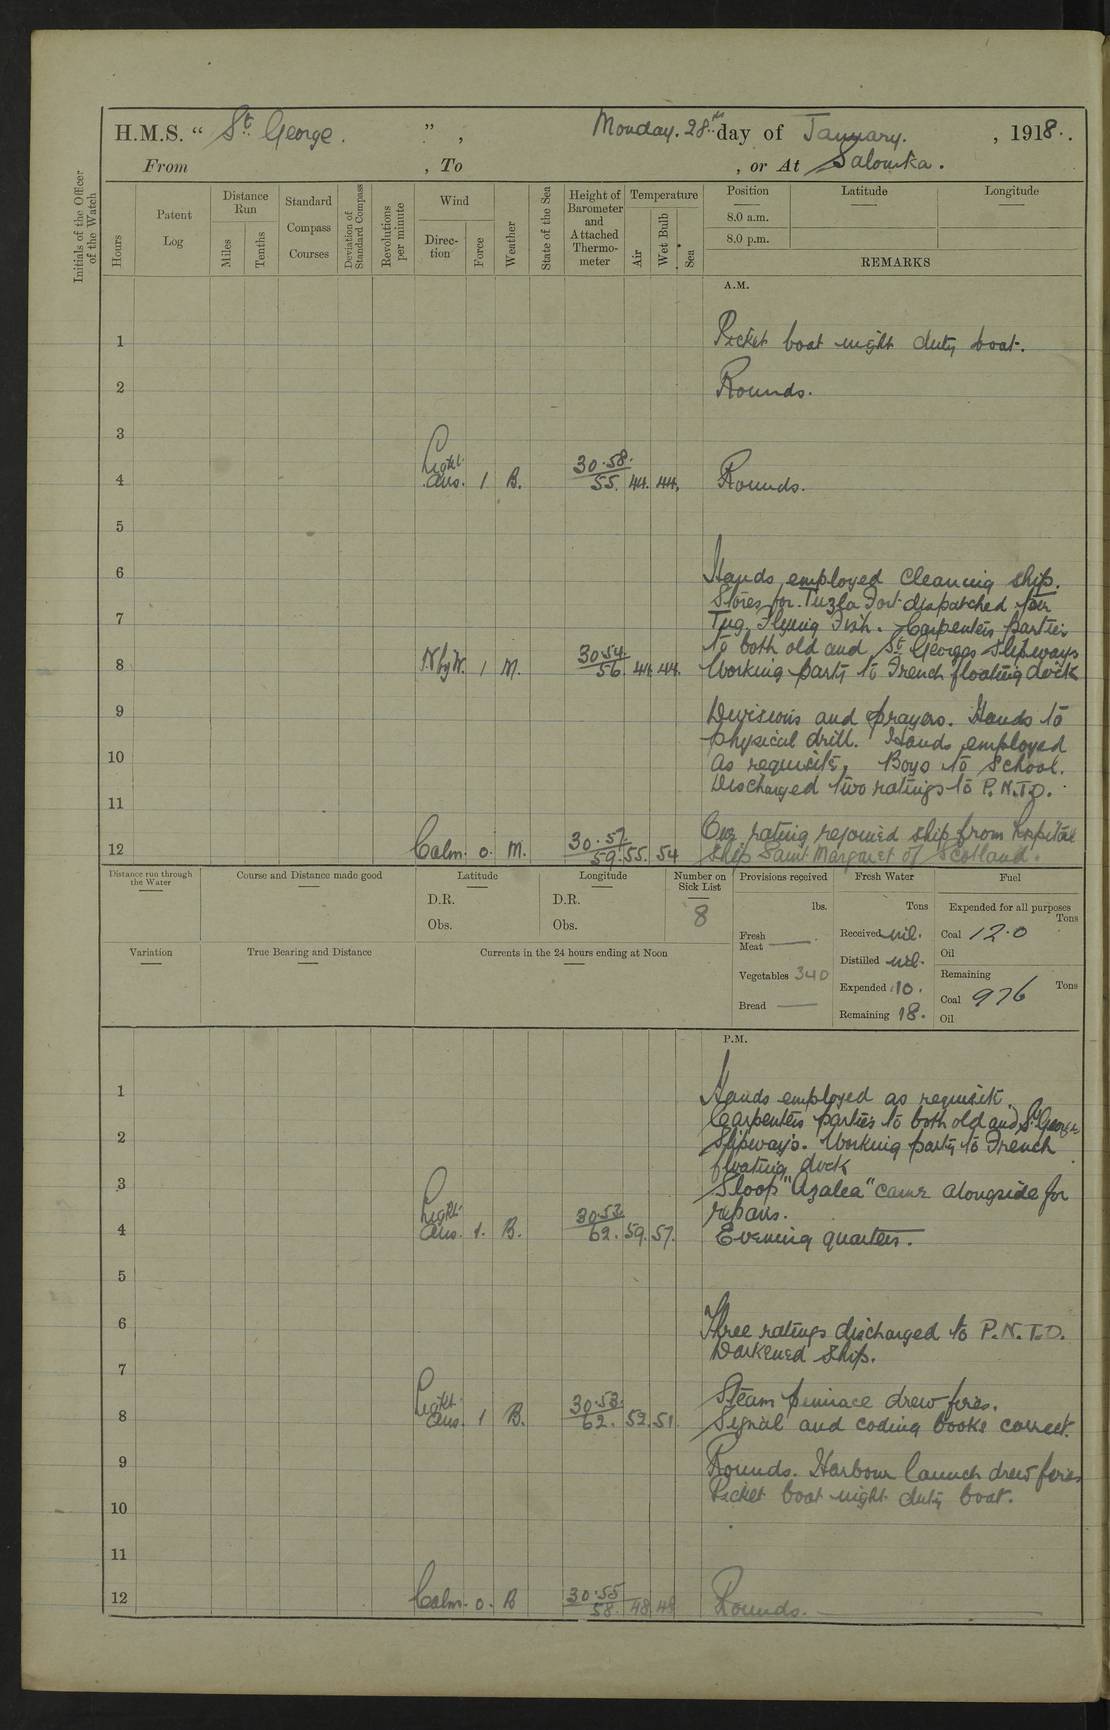 H.M.S. “ St. George. ” , Monday. 28th day of January. , 1918.
From , To , or At Salonika.
Initials of the Officer of the Watch
Hours
Patent Log
Distance Run
Miles
Tenths
Standard Compass Courses
Deviation of Standard Compass
Revolutions per minute
Wind
Direction
Force
Weather
State of the Sea
Height of Barometer and Attached Thermometer
Temperature
Air
Wet Bulb
Sea
Position
Latitude
Longitude
8.0 a.m.
8.0 p.m.
REMARKS
A.M.
1 Picket boat night duty boat.
2 Rounds.
3
4 Light airs. 1 B. 30.58. 55. 44. 44. Rounds.
5
6 Hands employed cleaning ship.
Stores for Tuzla Fort dispatched per
7 Tug. Flying Fish. Carpenters parties
to both old and St Georges slipways
8 N by W. 1 M. 30.54 56. 44. 44. Working party to French floating dock
9 Divisions and prayers. Hands to
physical drill. Hands employed
10 as requisite, Boys to School.
Discharged two ratings to P.N.T.O.
11
One rating rejoined ship from hospital
12 Calm. 0. M. 30.57. 59. 55. 54 ship Saint Margaret of Scotland.
Distance run through the Water
Course and Distance made good
Latitude
D.R.
Obs.
Longitude
D.R.
Obs.
Number on Sick List
8
Provisions received
lbs.
Fresh Meat —
Vegetables 340
Bread —
Fresh Water
Tons
Received nil.
Distilled nil.
Expended 10.
Remaining 18.
Fuel
Expended for all purposes
Tons
Coal 12.0
Oil
Remaining
Tons
Coal 976
Oil
Variation
True Bearing and Distance
Currents in the 24 hours ending at Noon
P.M.
1 Hands employed as requisite.
Carpenters parties to both old and St. George
2 Slipways. Working party to French
floating dock
3 Sloop "Azalea" came alongside for
repairs.
4 Light airs. 1. B. 30.53. 62. 59. 57. Evening quarters.
5
6 Three ratings discharged to P.N.T.O.
Darkened ship.
7
Steam pinnace drew fires.
8 Light airs. 1 B. 30.53. 62. 52. 51. Signal and coding books correct.
9 Rounds. Harbour launch drew fires
Picket boat night duty boat.
10
11
12 Calm. 0. B 30.55 58. 48. 48 Rounds.